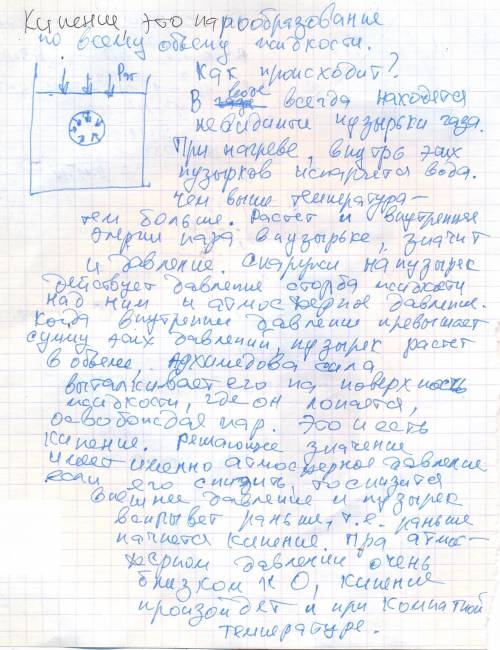 Кипение, это парообразование
по всему объему жидкости.
Рат
Как происходит?
В воде всегда находятся
невидимые пузырьки газа.
При нагреве, внутрь этих
пузырков испаряется вода.
Чем выше температура –
тем больше. Растет и внутренняя
энергия газа в пузырьке, значит
и давление. Снаружи на пузырек
действует давление столба жидкости
над ним и атмосферное давление.
Когда внутреннее давление превышает
сумму этих давлений, пузырек растет
в объеме, Архимедова сила
выталкивает его на поверхность
жидкости, где он лопается,
освобождая пар. Это и есть
кипение. Решающее значение
имеет именно атмосферное давление
если его снизить, то снизится
внешнее давление и пузырек
всплывет раньше, т.е. раньше
начнется кипение. При атмос-
ферном давлении очень
близком к 0, кипение
произойдет и при комнатной
температуре.